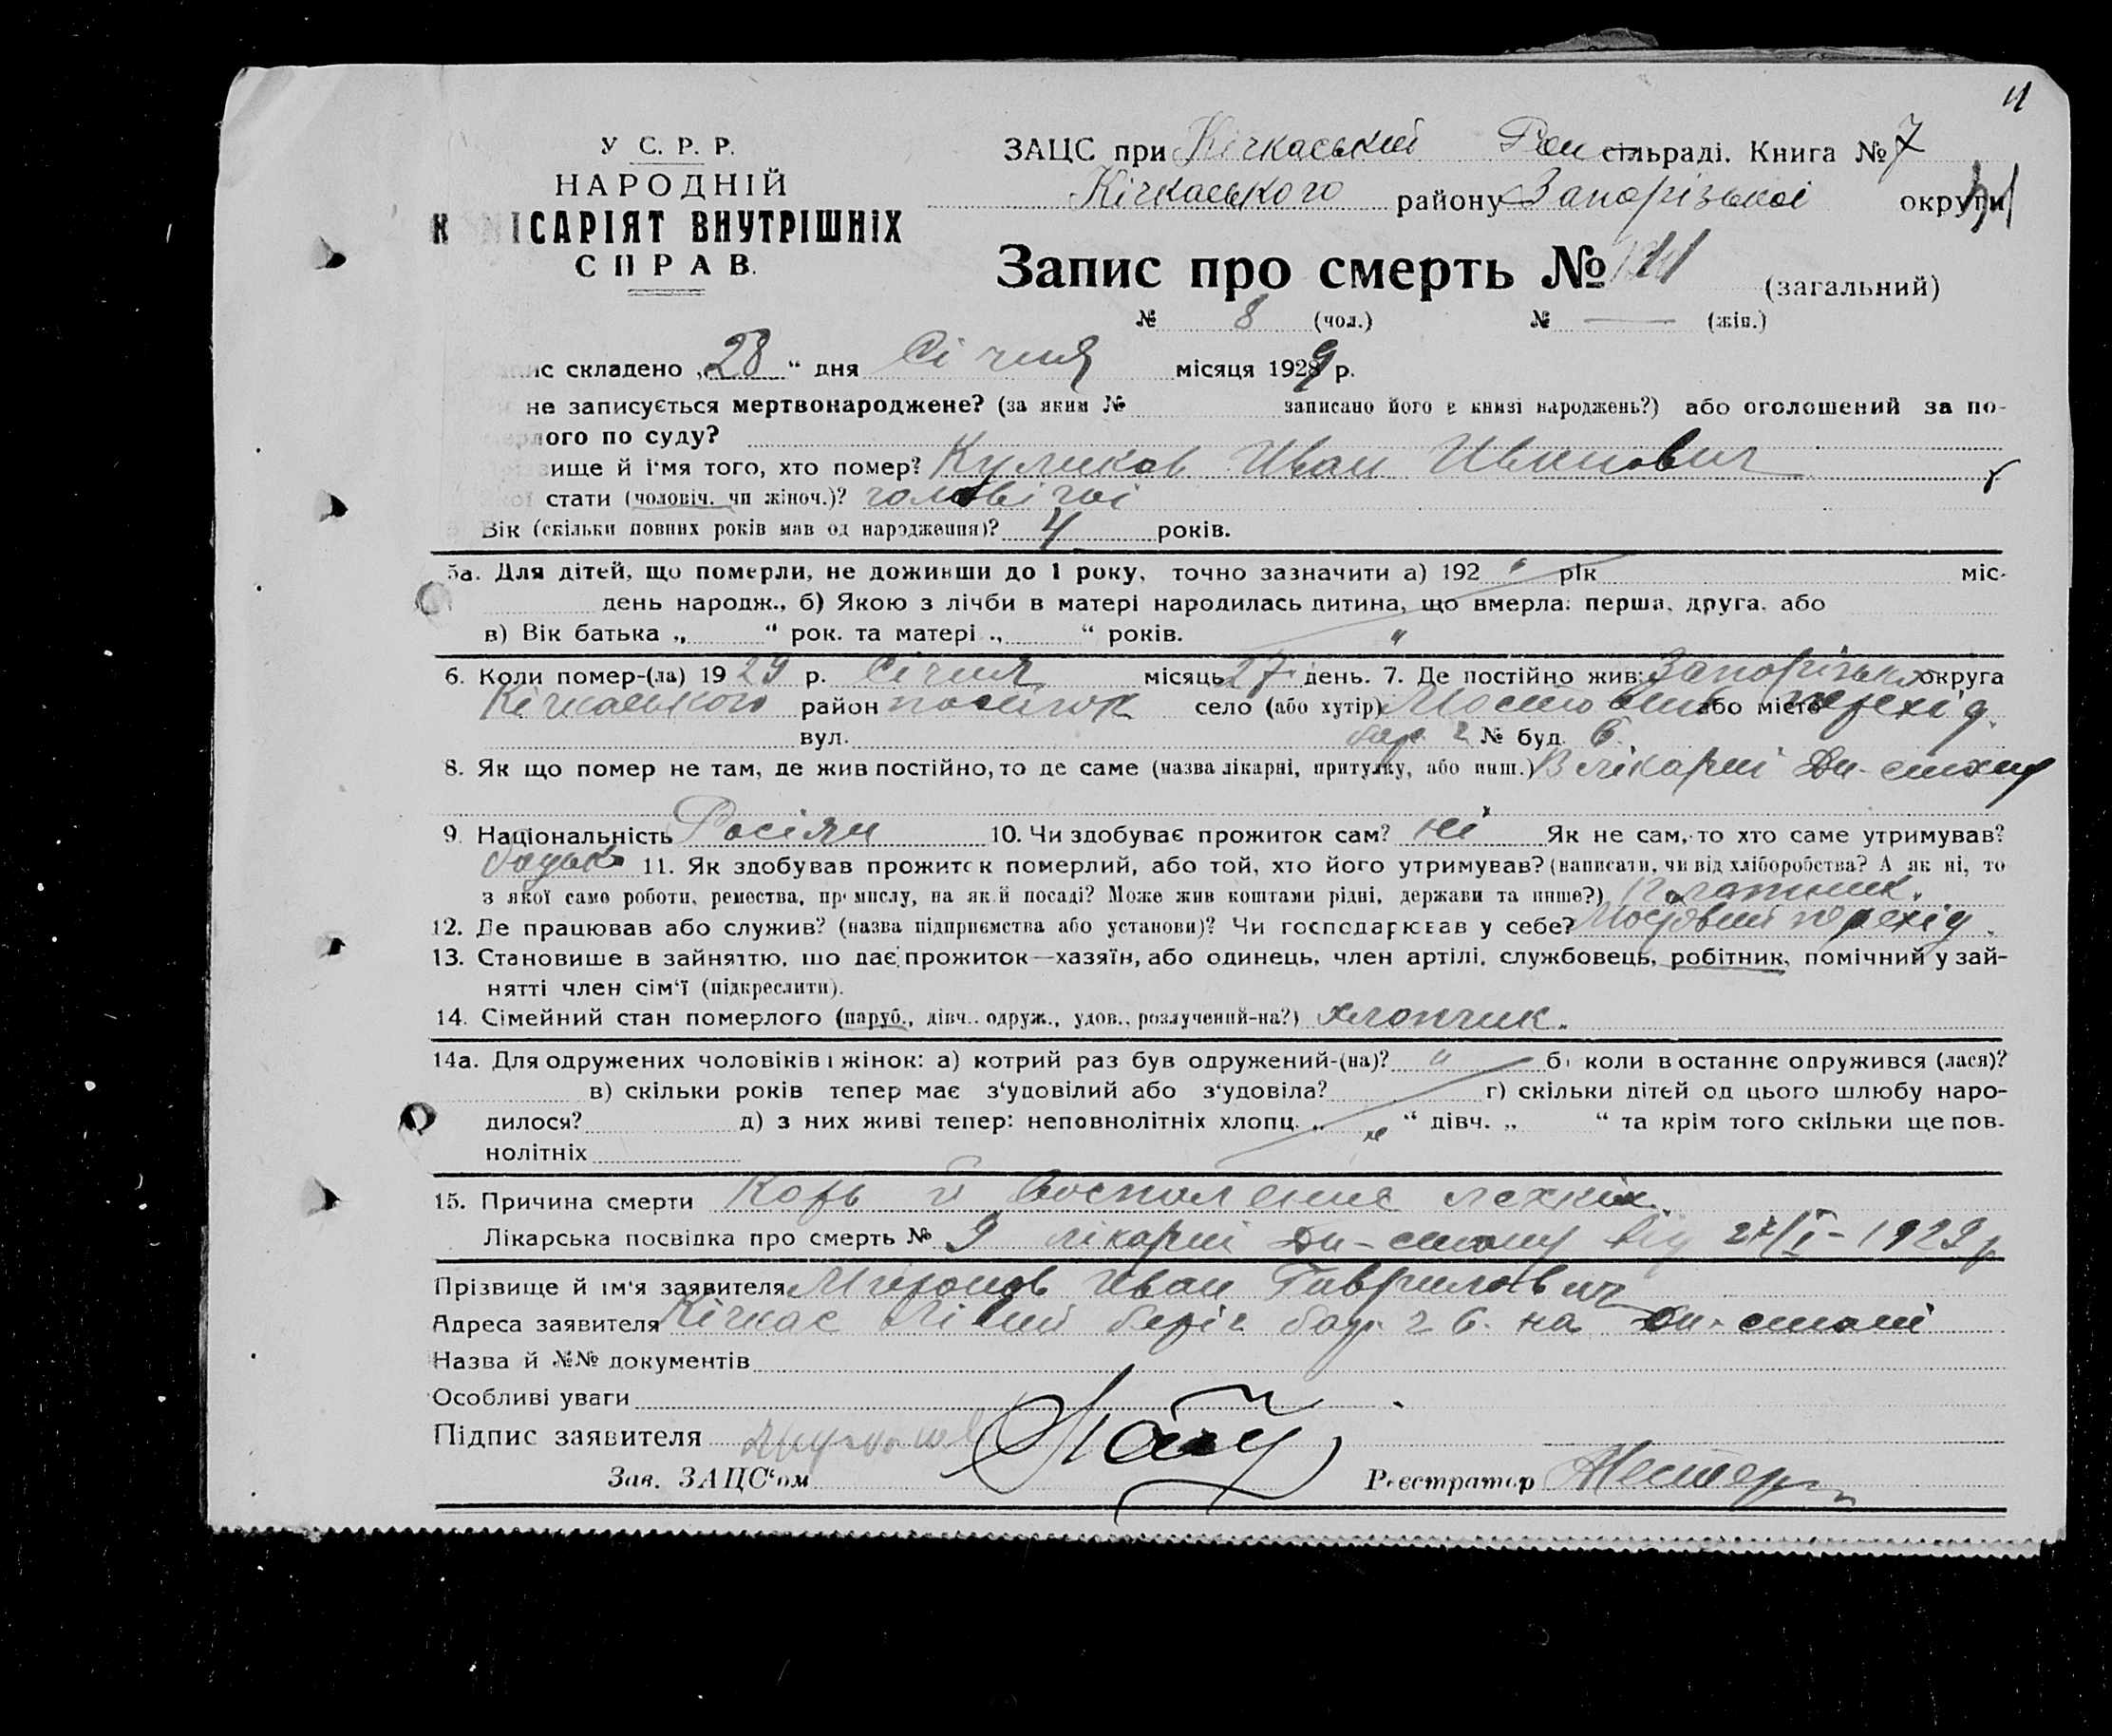 У С. Р. Р.
НАРОДНІЙ
САРІЯТ ВНУТРІШНІХ
СПРАВ.
ЗАЦС при Кічкаській Рай сільраді. Книга № 7
Кічкаського району Запорізької округи
Запис про смерть № (загальний)
№ 8 (чол.) № — (жін.)
ис складено „28" дня Січня місяця 1929 р.
не записується мертвонароджене? (за яким № записано його в книзі народжень?) або оголошений за по-
мерлого по суду?
вище й і'мя того, хто помер? Куликов Иван Иванович
стати (чоловіч. чи жіноч.)? чоловічої
Вік (скільки повних років мав од народження)? 4 років.
5а. Для дітей, що померли, не доживши до 1 року, точно зазначити а) 192 рік міс.
день народж., б) Якою з лічби в матері народилась дитина, що вмерла: перша, друга, або
в) Вік батька „ " рок. та матері „ " років. "
6. Коли помер-(ла) 1929 р. Січня місяць 27 день. 7. Де постійно жив: Запорізька округа
Кічкаського район посілок село (або хутір) Мостовий або місто перехід.
вул. бар. 2 № буд. 6.
8. Як що помер не там, де жив постійно, то де саме (назва лікарні, притулку, або инш.) В лікарні Дн-стану
9. Національність Росіян 10. Чи здобуває прожиток сам? ні Як не сам, то хто саме утримував?
батько 11. Як здобував прожиток померлий, або той, хто його утримував? (написати, чи від хліборобства? А як ні, то
з якої саме роботи, ремества, промислу, на якій посаді? Може жив коштами рідні, держави та инше?)
12. Де працював або служив? (назва підприємства або установи)? Чи господарював у себе? Мостовий перехід.
13. Становище в зайняттю, що дає прожиток—хазяїн, або одинець, член артілі, службовець, робітник, помічний у зай-
нятті член сім'ї (підкреслити).
14. Сімейний стан померлого (паруб., дівч., одруж., удов., розлучений-на?) хлопчик.
14а. Для одружених чоловіків і жінок: а) котрий раз був одружений-(на)? " б) коли востаннє одружився (лася)?
в) скільки років тепер має з'удовілий або з'удовіла? г) скільки дітей од цього шлюбу наро-
дилося? д) з них живі тепер: неповнолітніх хлопц. „ " дівч. „ " та крім того скільки ще пов-
нолітніх
15. Причина смерти Корь и Воспаление легких.
Лікарська посвідка про смерть № 9 лікарні Дн-стану від 27/I-1929 р
Прізвище й ім'я заявителя Иван Гаврилович
Адреса заявителя Кічкас Лівий беріг бар. 2 6. на Дн-стані
Назва й №№ документів
Особливі уваги
Підпис заявителя
Зав. ЗАЦС'ом Реєстратор